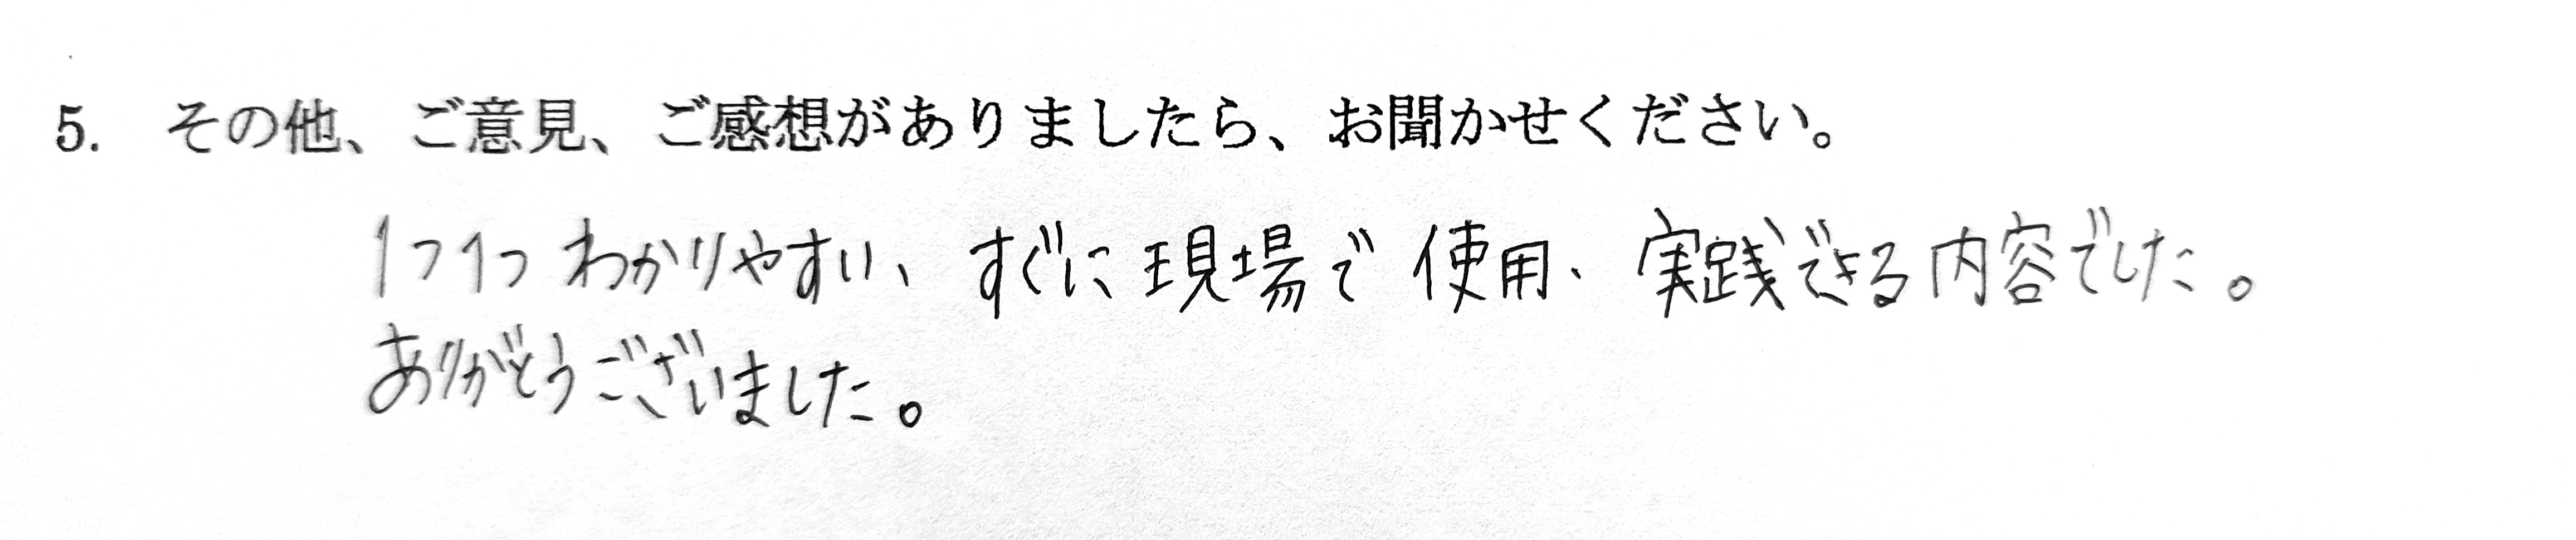 5. その他、ご意見、ご感想がありましたら、お聞かせください。
1つ1つわかりやすい、すぐに現場で使用、実践できる内容でした。
ありがとうございました。